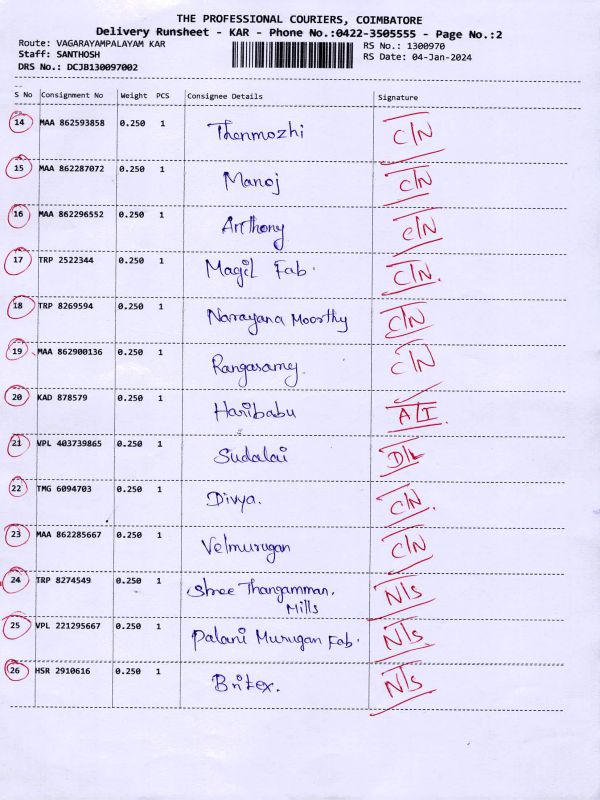 THE PROFESSIONAL COURIERS, COIMBATORE
Delivery Runsheet - KAR - Phone No.:0422-3505555 - Page No.:2
Route: VAGARAYAMPALAYAM KAR RS No.: 1300970
Staff: SANTHOSH RS Date: 04-Jan-2024
DRS No.: DCJB130097002
S No Consignment No Weight PCS Consignee Details Signature
14 MAA 862593858 0.250 1 Thenmozhi C/N
15 MAA 862287072 0.250 1 Manoj C/N
16 MAA 862296552 0.250 1 Anthony C/N
17 TRP 2522344 0.250 1 Magil Fab. C/N.
18 TRP 8269594 0.250 1 Narayana Moorthy C/N
19 MAA 862900136 0.250 1 Rangasamy. C/N
20 KAD 878579 0.250 1 Haribabu A/I.
21 VPL 403739865 0.250 1 Sudalai D/L
22 TMG 6094703 0.250 1 Divya. C/N.
23 MAA 862285667 0.250 1 Velmurugan C/N
24 TRP 8274549 0.250 1 Shree Thangamman. N/S
Mills
25 VPL 221295667 0.250 1 Palani Murugan Fab. N/S
26 HSR 2910616 0.250 1 Britex. N/S